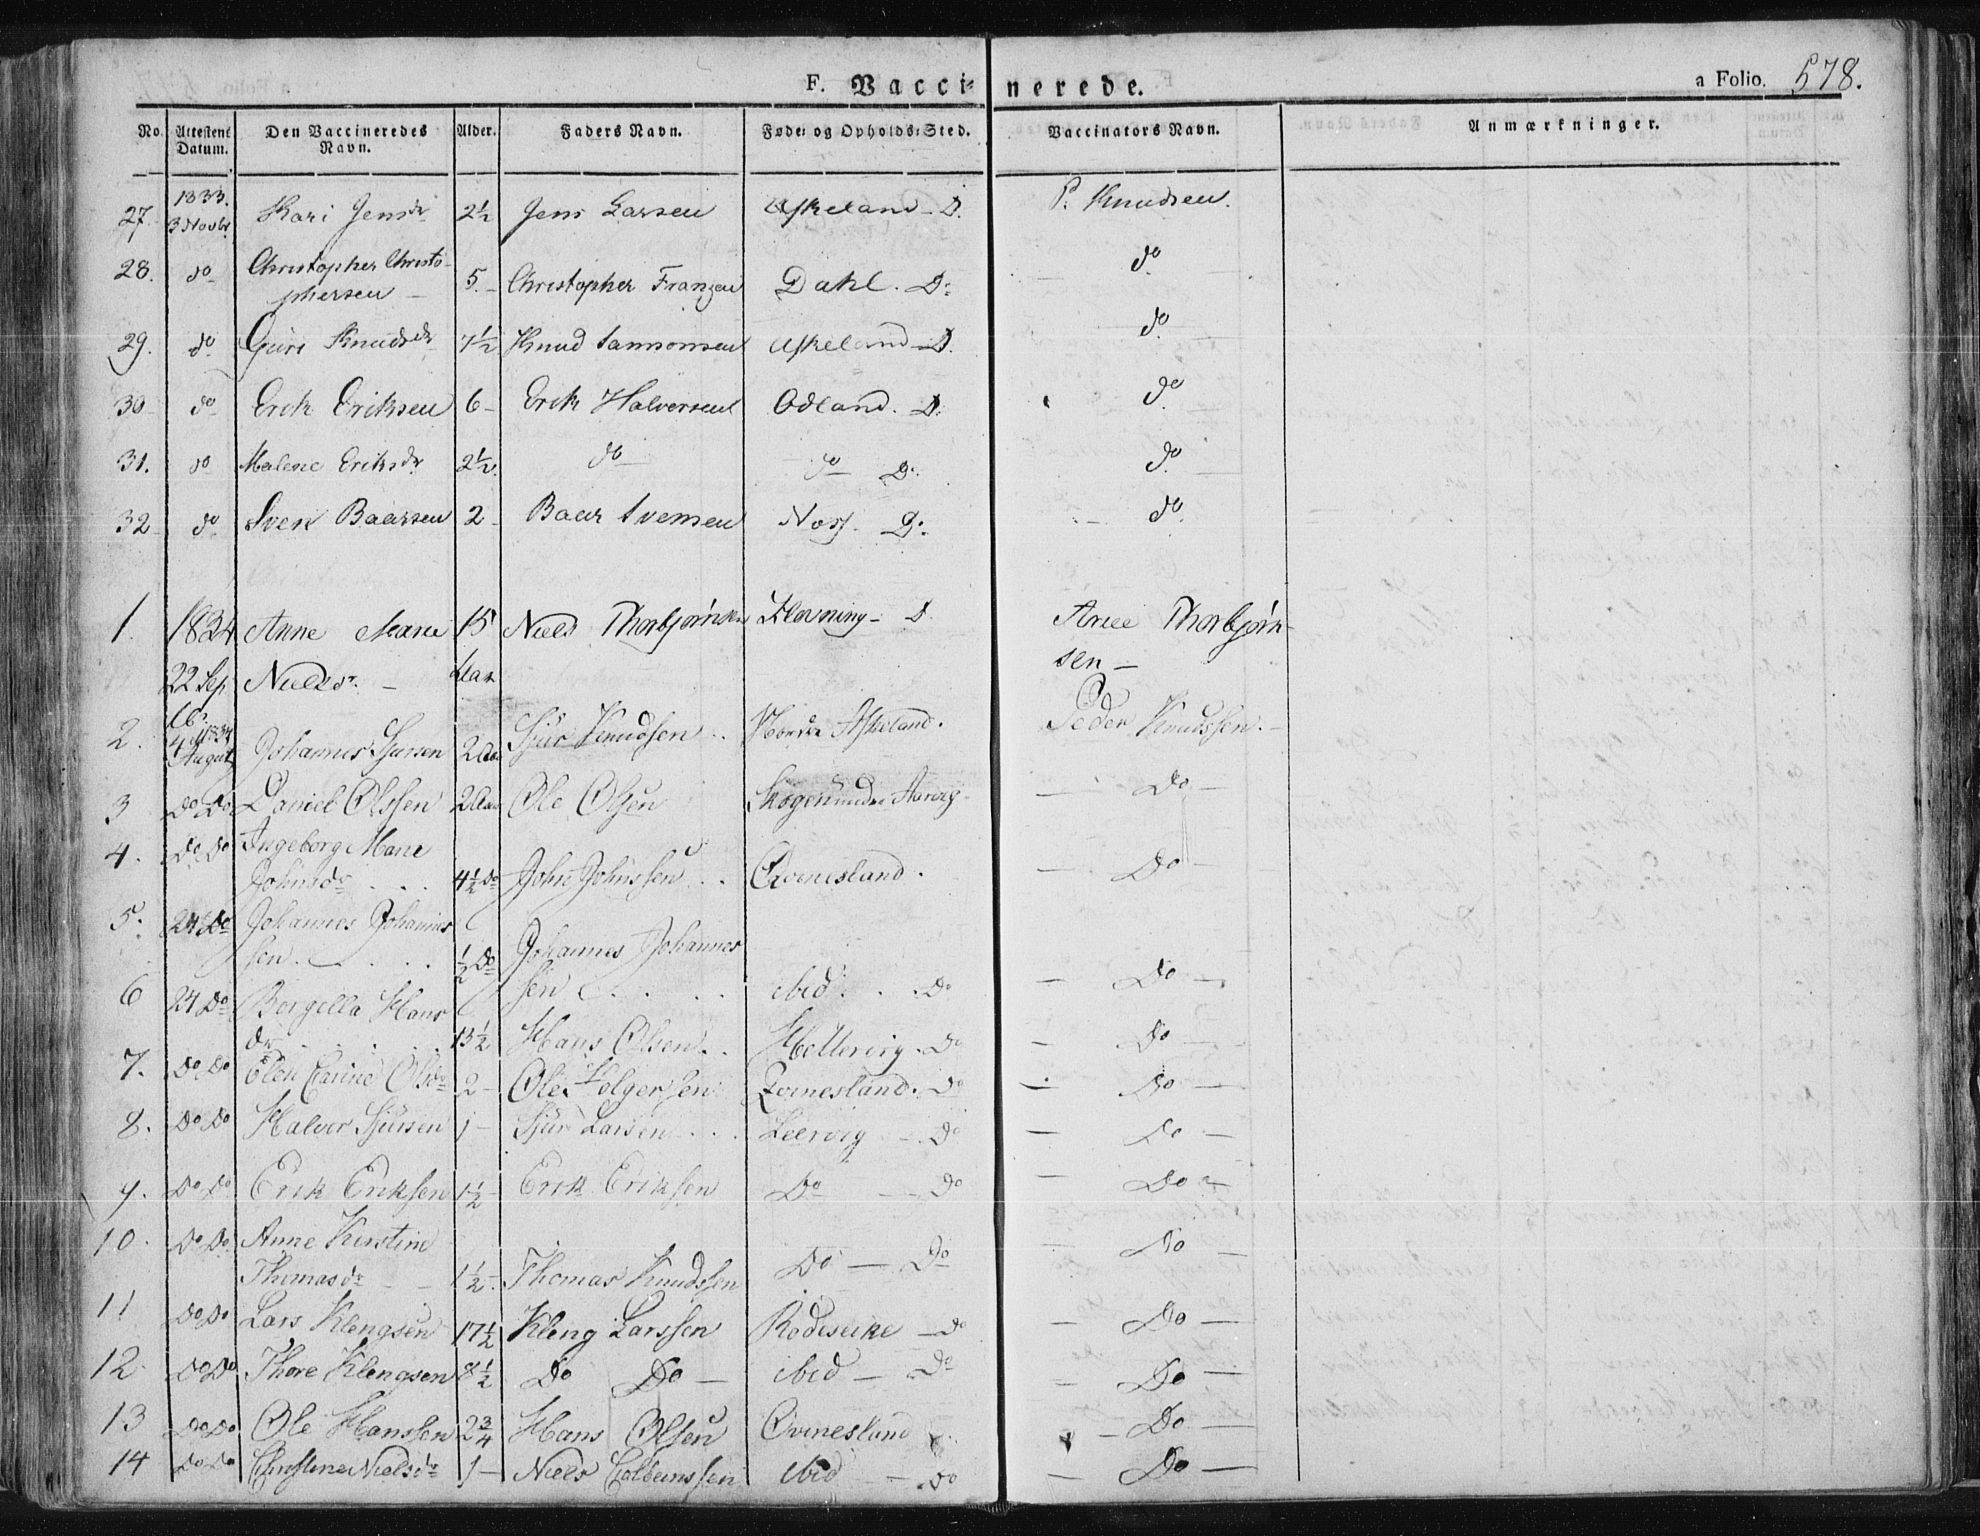 F. Vacci- nerede. a Folio. 578.
No. Attestens Datum. Den Vaccineredes Navn. Alder. Faders Navn. Føde- og Opholds-Sted. Vaccinators Navn. Anmærkninger.
1833.
27. 3 Novbr. Kari Jensdr 2½ Jens Larsen Askeland - D. P. Knudsen.
28. do Christopher Christo-
phersen - 5. - Christopher Franzen Dahl. Do do
29. do Guri Knudsdr 7½ Knud Samsonsen Askeland - D. do
30 do Erik Eriksen 6 - Erik Halversen Odland. D. do
31. do Malene Eriksdr 2½. do do D. do
32 do Sven Baarsen 2 - Baar Svensen D. do
1. 1834 Anne Marie 15 Niels Thorbjørnsen Kløvning - D. Arne Thorbjørn-
22 Sep Nielsdr. - Aar sen -
2. 1834 August Johannes Sjursen 2 Aar Sjur Knudsen .. Askeland. Peder Knudssen. -
3 Do Do Daniel Olssen 2 Aar Ole Olsen Skogen under Aarvig - Do -
4. Do Do Ingeborg Marie
Johnsdr . . . 4½ Do John Johnssen . . Qvinesland. - Do -
5. 24 Do Johannes Johannes
sen. . . . . ½ Do Johannes Johannes
sen . . . ibid . . . Do - Do -
6 24 Do Borgilla Hans
dr . . . . 13½ Hans Olsen . . Hellevig. Do - Do -
7. Do Do Elen Carine Olsdr 2 - Ole Helgersen Qvinesland. Do - Do -
8. Do Do Halvor Sjursen 1 - Sjur Larsen . . . Leervig - Do - Do -
9. Do Do Erik Eriksen 1½ - Erik Eriksen Do - Do - Do -
10. Do Do Anne Kirstine
Thomasdr - - 1½ - Thomas Knudssen Do - Do - Do -
11 Do Do Lars Klengsen 17½ Kleng Larssen Rødeseike - Do - Do -
12. Do Do Thore Klengsen 8½ Do Do - ibid - Do - Do -
13 Do Do Ole Hanssen 2¾ Hans Olsen Qvinesland - Do -
14 Do Do Christine Nielsdr 1 - Niels Colbeinssen ibid - Do - Do -